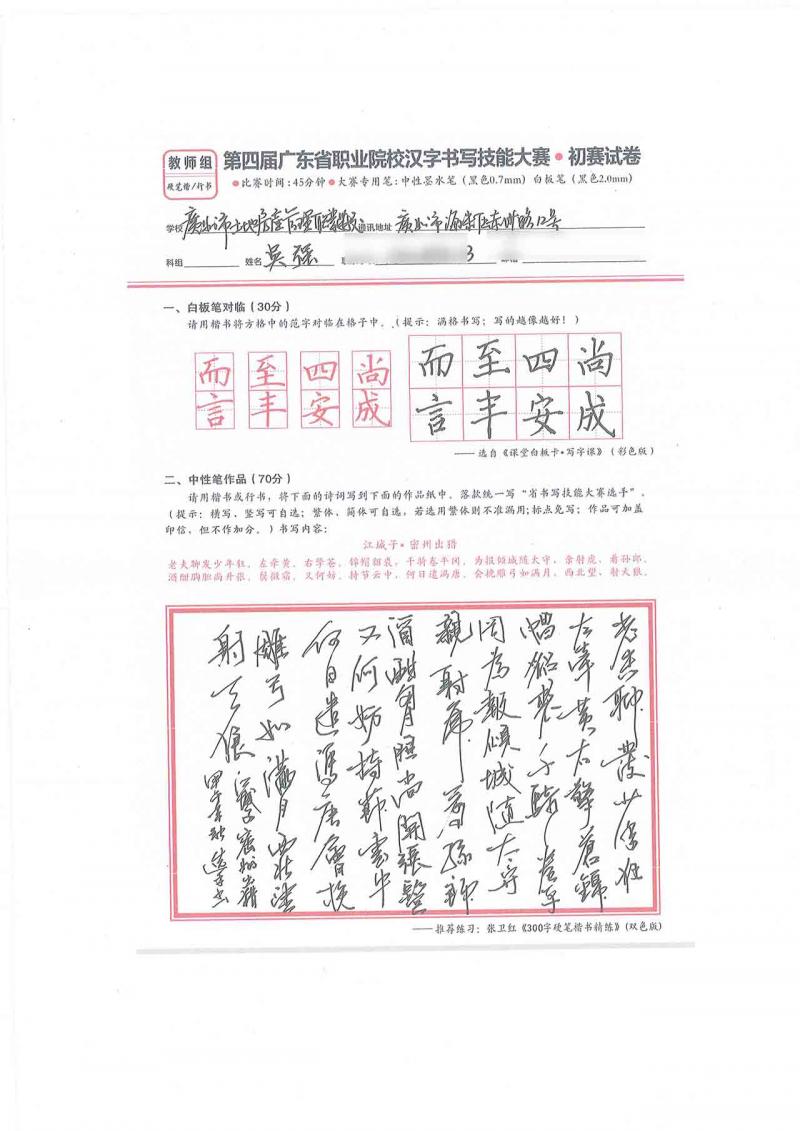 教师组
硬笔楷/行书
第四届广东省职业院校汉字书写技能大赛•初赛试卷
●比赛时间:45分钟●大赛专用笔:中性墨水笔(黑色0.7mm) 白板笔(黑色2.0mm)
学校 广州市土地房产管理职业学校 通讯地址 广州市
科组 姓名 吴强 3
一、白板笔对临(30分)
请用楷书将方格中的范字对临在格子中。(提示:满格书写;写的越像越好!)
而 至 四 尚
言 丰 安 成
而 至 四 尚
言 丰 安 成
——选自《课堂白板卡•写字课》(彩色版)
二、中性笔作品(70分)
请用楷书或行书,将下面的诗词写到下面的作品纸中。落款统一写“省书写技能大赛选手”。
(提示:横写、竖写可自选;繁体、简体可自选,若选用繁体则不准漏用;标点免写;作品可加盖
印信,但不作加分。)书写内容:
江城子·密州出猎
老夫聊发少年狂,左牵黄,右擎苍,锦帽貂裘,千骑卷平冈。为报倾城随太守,亲射虎,看孙郎。
酒酣胸胆尚开张,鬓微霜,又何妨。持节云中,何日遣冯唐。会挽雕弓如满月,西北望,射天狼。
老夫聊發少年狂
左牽黃右擎蒼錦
帽貂裘千騎卷平
岡為報傾城隨太守
親射虎看孫郎
酒酣胸膽尚開張鬢
又何妨持節雲中
何日遣馮唐會挽
雕弓如滿月西北望
射天狼 江城子密州出獵
甲午年秋
——推荐练习:张卫红《300字硬笔楷书精练》(双色版)